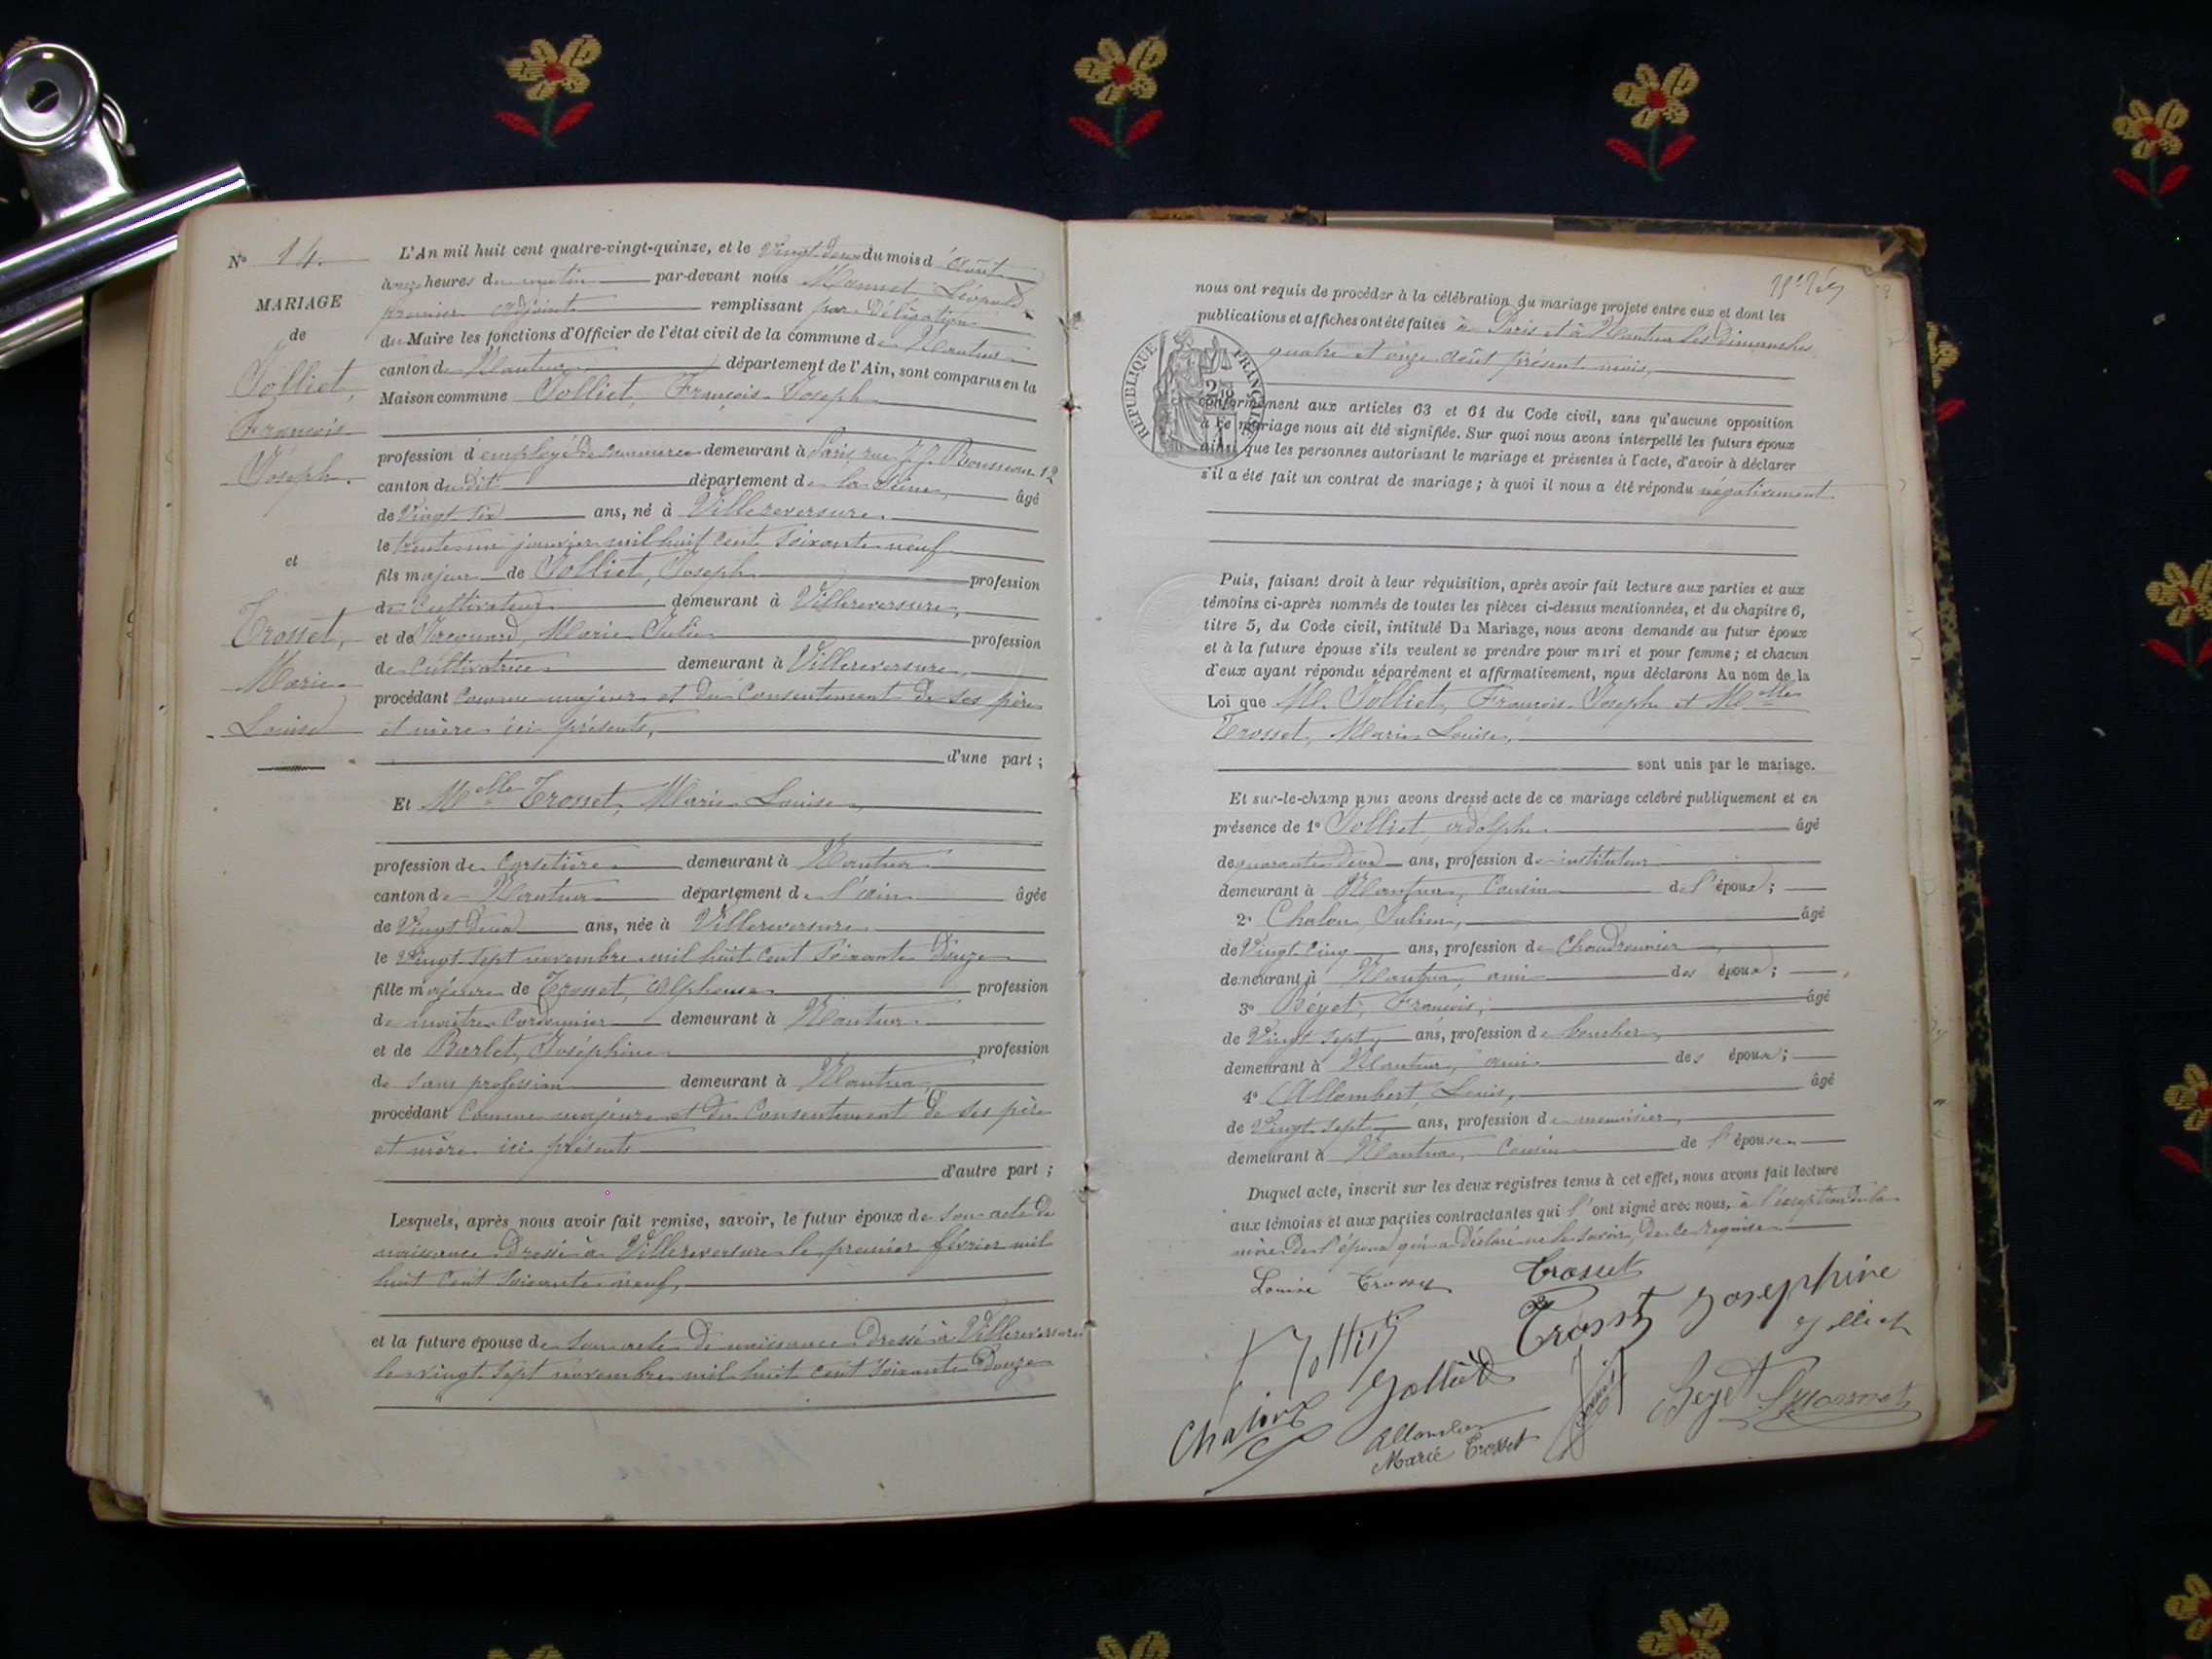 N° 14.
MARIAGE
de
Jolliet,
François
Joseph.
et
Trosset,
Marie
Louise
L'An mil huit cent quatre-vingt-quinze, et le Vingt deux du mois d'août
à onze heures du matin par-devant nous Léopold
premier adjoint remplissant par délégation
du Maire les fonctions d'Officier de l'état civil de la commune de Nantua
canton de Nantua département de l'Ain, sont comparus en la
Maison commune Jolliet, François Joseph
profession d'employé de commerce demeurant à Paris, rue J. J. Rousseau 12
canton du dit département de la Seine, âgé
de Vingt six ans, né à Villereversure.
le trente un janvier mil huit cent soixante neuf
fils majeur de Jolliet, Joseph profession
de Cultivateur demeurant à Villereversure,
et de Marie Julie profession
de Cultivatrice demeurant à Villereversure,
procédant comme majeur et du consentement de ses père
et mère ici présents,
d'une part ;
Et Melle Trosset, Marie Louise,
profession de Corsetière demeurant à Nantua
canton de Nantua département de l'ain âgée
de Vingt deux ans, née à Villereversure
le Vingt sept novembre mil huit cent soixante douze
fille majeure de Trosset, Alphonse profession
de maître Cordonnier demeurant à Nantua
et de Barlet, Joséphine profession
de sans profession demeurant à Nantua
procédant comme majeure et du consentement de ses père
et mère ici présents
d'autre part ;
Lesquels, après nous avoir fait remise, savoir, le futur époux de son acte de
naissance dressé à Villereversure le premier février mil
huit cent soixante neuf,
et la future épouse de son acte de naissance dressé à Villereversure
le vingt sept novembre mil huit cent soixante douze
nous ont requis de procéder à la célébration du mariage projeté entre eux et dont les
publications et affiches ont été faites à Paris et à Nantua les dimanches
quatre et onze août présent mois,
REPUBLIQUE FRANÇAISE
conformément aux articles 63 et 64 du Code civil, sans qu'aucune opposition
à ce mariage nous ait été signifiée. Sur quoi nous avons interpellé les futurs époux
ainsi que les personnes autorisant le mariage et présentes à l'acte, d'avoir à déclarer
s'il a été fait un contrat de mariage ; à quoi il nous a été répondu négativement
Puis, faisant droit à leur réquisition, après avoir fait lecture aux parties et aux
témoins ci-après nommés de toutes les pièces ci-dessus mentionnées, et du chapitre 6,
titre 5, du Code civil, intitulé Du Mariage, nous avons demandé au futur époux
et à la future épouse s'ils veulent se prendre pour mari et pour femme ; et chacun
d'eux ayant répondu séparément et affirmativement, nous déclarons Au nom de la
Loi que M. Jolliet, François Joseph et Melle
Trosset, Marie Louise,
sont unis par le mariage.
Et sur-le-champ nous avons dressé acte de ce mariage célébré publiquement et en
présence de 1° Jolliet, adolphe âgé
de quarante deux ans, profession de instituteur
demeurant à Nantua, Cousin de l'époux ;
2° Chalon, Julien, âgé
de Vingt Cinq ans, profession de Chaudronnier,
demeurant à Nantua, ami des époux ;
3° Béyet, François, âgé
de Vingt sept ans, profession de boucher,
demeurant à Nantua, ami des époux ;
4° Allombert, Louis, âgé
de Vingt sept ans, profession de menuisier,
demeurant à Nantua, Cousin de l'épouse
Duquel acte, inscrit sur les deux registres tenus à cet effet, nous avons fait lecture
aux témoins et aux parties contractantes qui l'ont signé avec nous, à l'exception de la
mère de l'époux qui a déclaré ne le savoir, de ce requise
Louise Trosset Trosset
F Jolliet Trosset Josephine
Jolliet Jolliet
Chalon Allombert Beyet
Marie Trosset